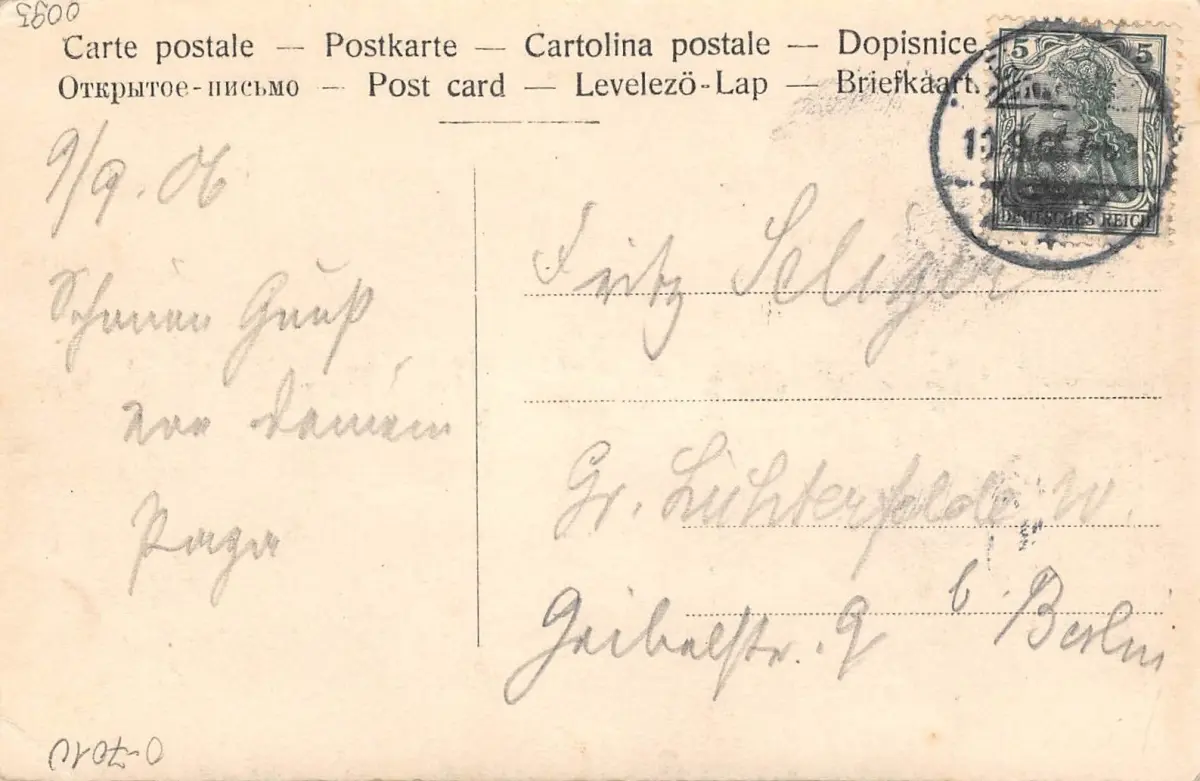 Carte postale — Postkarte — Cartolina postale — Dopisnice
Открытое-письмо — Post card — Levelező-Lap — Briefkaart.
5 5
DEUTSCHES REICH
9/9. 06
Schönen Gruß
von Deinem
Papa
Fritz Seliger
Gr. Lichterfelde W.
b. Berlin
Geibelstr. 9